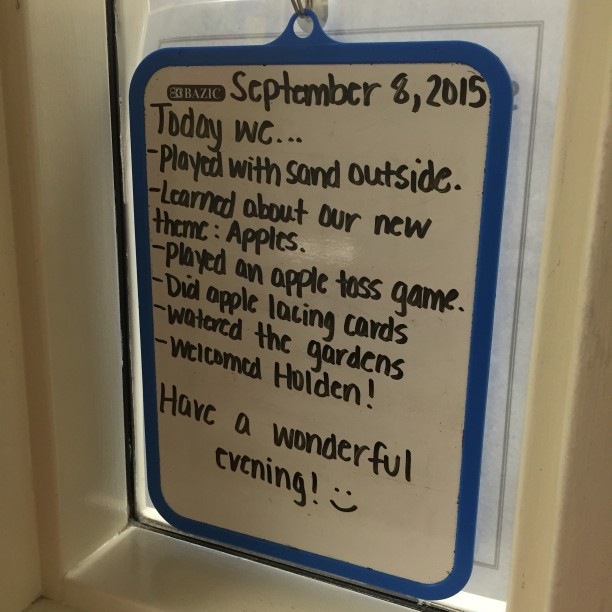 BAZIC September 8, 2015
Today we...
-Played with sand outside.
-Learned about our new
theme: Apples.
-Played an apple toss game.
-Did apple lacing cards
-Watered the gardens
-Welcomed Holden!
Have a wonderful
evening! :)